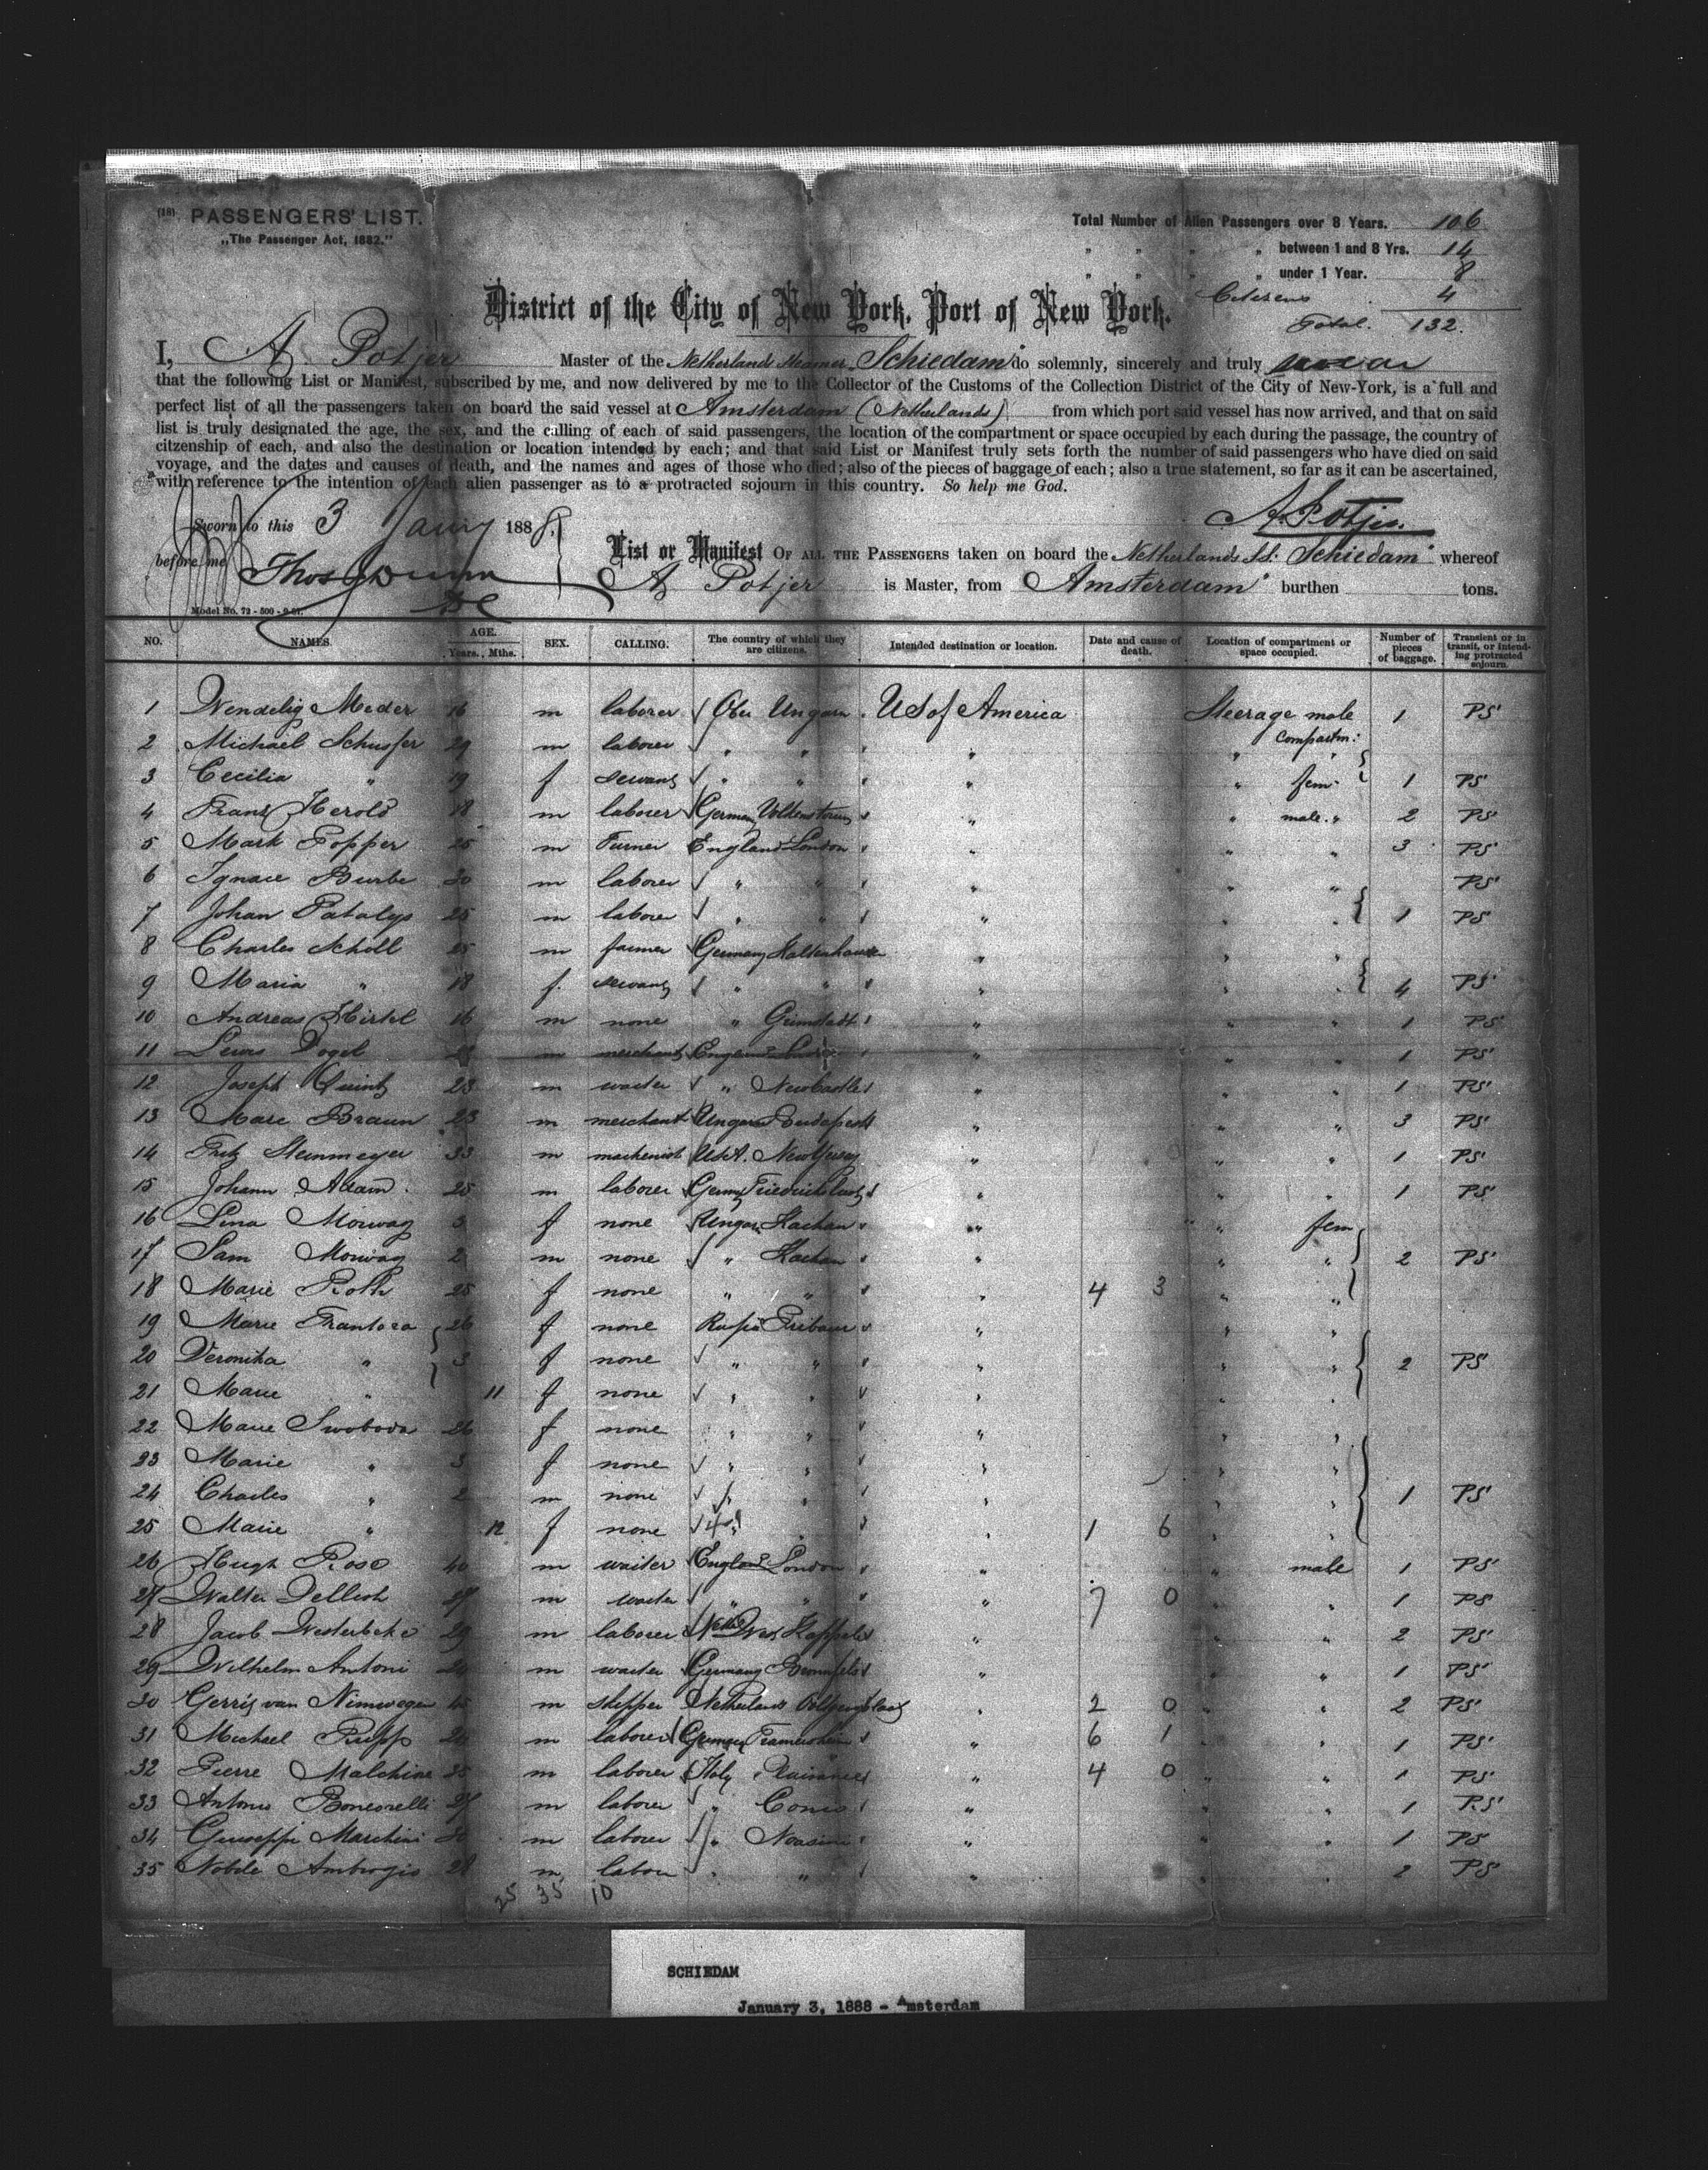 (18) PASSENGERS' LIST.
„The Passenger Act, 1882."
Total Number of Alien Passengers over 8 Years. 106
" " " " between 1 and 8 Yrs. 14
" " " " under 1 Year. 8
Citizens 4
Total. 132.
District of the City of New York, Port of New York.
I, A. Potjer Master of the Netherlands steamer „Schiedam" do solemnly, sincerely and truly swear
that the following List or Manifest, subscribed by me, and now delivered by me to the Collector of the Customs of the Collection District of the City of New-York, is a full and
perfect list of all the passengers taken on board the said vessel at Amsterdam (Netherlands) from which port said vessel has now arrived, and that on said
list is truly designated the age, the sex, and the calling of each of said passengers, the location of the compartment or space occupied by each during the passage, the country of
citzenship of each, and also the destination or location intended by each; and that said List or Manifest truly sets forth the number of said passengers who have died on said
voyage, and the dates and causes of death, and the names and ages of those who died; also of the pieces of baggage of each; also a true statement, so far as it can be ascertained,
with reference to the intention of each alien passenger as to a protracted sojourn in this country. So help me God.
A. Potjer.
Sworn to this 3 Jany 1888.
before me Thos Dunn
DC
Model No. 72 - 500 - 9-87.
List or Manifest OF ALL THE PASSENGERS taken on board the Netherlands SS. „Schiedam" whereof
A. Potjer is Master, from „Amsterdam" burthen tons.
NO. NAMES. AGE. Years. Mths. SEX. CALLING. The country of which they are citizens. Intended destination or location. Date and cause of death. Location of compartment or space occupied. Number of pieces of baggage. Transient or in transit, or intending protracted sojourn.
1 Wendelig Meder 16 m laborer Ober Ungarn US of America Steerage male compartm: 1 PS
2 Michael Schusser 29 m laborer " " " " "
3 Cecilia " 19 f servant " " " " fem. 1 PS
4 Franz Herold 18 m laborer Germany " " male " 2 PS
5 Mark Popper 25 m Turner England London " " " 3 PS
6 Ignace Burbe 30 m laborer " " " " " PS
7 Johan Patalys 25 m laborer " " " " " 1 PS
8 Charles Scholl 25 m farmer Germany Kaltenhausen " " "
9 Maria " 18 f. servant " " " " " 4 PS
10 Andreas Hirtel 16 m none " Grünstadt " " " 1 PS
11 Lewis Vogel m merchant England " " " 1 PS
12 Joseph Quintz 23 m waiter " Newcastle " " " 1 PS
13 Marc Braun 23 m merchant Ungarn Budapest " " " 3 PS
14 Fritz Steinmeyer 33 m machenist USA. New Jersey " " " 1 PS
15 Johann Adam. 25 m laborer Germ " " " 1 PS
16 Lina Morwag 3 f none Ungarn Kachau " " fem
17 Sam Morwag 2 m none " Kachau " " " 2 PS
18 Marie Roth 25 f none " " " 4 3 " "
19 Marie Frantosa 26 f none Russia Pribaur " " "
20 Veronika " 3 f none " " " " " 2 PS
21 Marie " 11 f none " " " " "
22 Marie Swoboda 26 f none " " " " "
23 Marie " 3 f none " " " " "
24 Charles " 2 m none " " " " " 1 PS
25 Marie " 12 f none " " " 1 6 " "
26 Hugh Rose 40 m waiter England London " " male 1 PS
27 Walter Dellish 27 m waiter " " " 7 0 " " 1 PS
28 Jacob Westerbeke 29 m laborer Neth West Kappele " " " 2 PS
29 Wilhelm Antoni 29 m waiter Germany Braunfels " " " 1 PS
30 Gerrig van Nimwegen 45 m skipper Netherland " 2 0 " " 2 PS
31 Michael Rupp m laborer Germany " 6 1 " " 1 PS
32 Pierre Malchine 35 m laborer Italy Plaisance " 4 0 " " 1 PS
33 Antonio Boncorelli 27 m laborer " Como " " " 1 P.S
34 Giuseppi Marchini 30 m laborer " " " " 1 PS
35 Nobile Ambrogio 28 m labour " " " " " 2 PS
25 35 10
SCHIEDAM
January 3, 1888 - Amsterdam